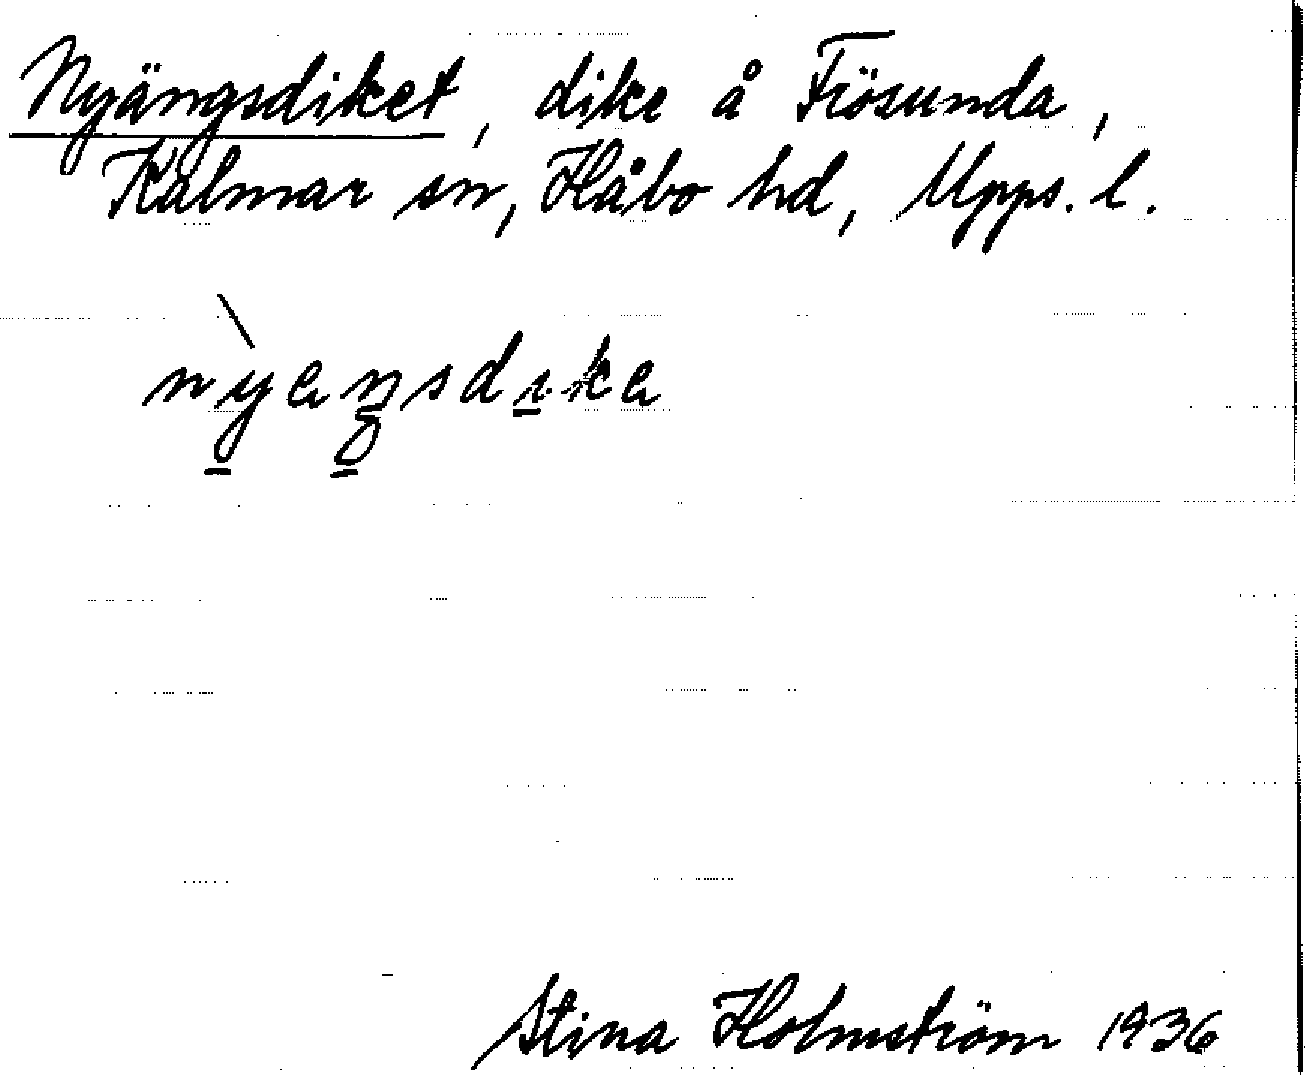 Nyängsdiket, dike å Frösunda,
Kalmar sn, Håbo hd, Upps. l.
nyeŋsdıke
Stina Holmström 1936